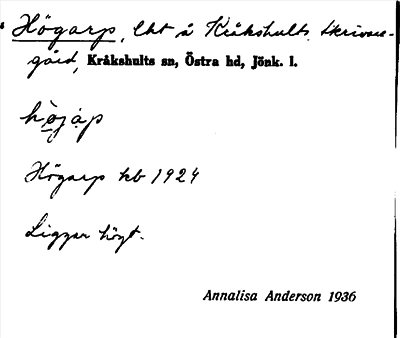 Högarp, lht å Kråkshults Skrivare-
gård, Kråkshults sn, Östra hd, Jönk. l.
Högarp kb 1924
Ligger högt.
Annalisa Anderson 1936